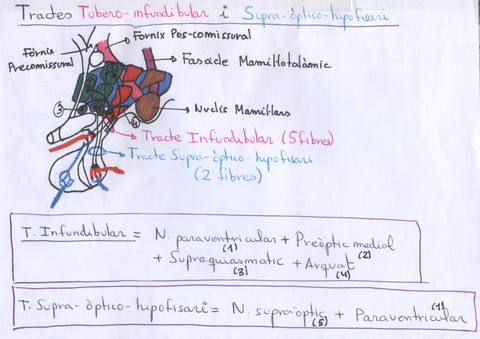 Tractes Tubero-infundibular i Supra-òptico-hipofisari
Fòrnix Pos-comissural
Fòrnix
Precomissural
Fascicle Mamil·lotalàmic
Nuclis Mamil·lars
Tracte Infundibular (5 fibres)
Tracte Supra-òptico-hipofisari
(2 fibres)
3
4
T. Infundibular = N. paraventricular (1) + Preòptic medial (2)
+ Supraquiasmatic (3) + Arquat (4)
T. Supra-òptico-hipofisari = N. supraòptic (5) + Paraventricular (1)